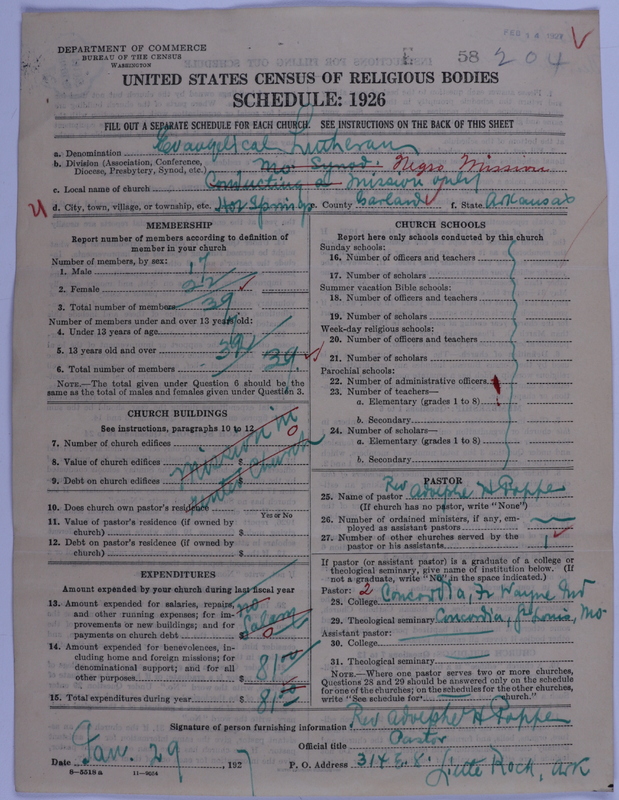 FEB 14 1927
DEPARTMENT OF COMMERCE
BUREAU OF THE CENSUS
WASHINGTON
E 58 204
UNITED STATES CENSUS OF RELIGIOUS BODIES
SCHEDULE: 1926
FILL OUT A SEPARATE SCHEDULE FOR EACH CHURCH. SEE INSTRUCTIONS ON THE BACK OF THIS SHEET
a. Denomination Evangelical Lutheran
b. Division (Association, Conference, Diocese, Presbytery, Synod, etc.) Mo Synod. Negro Mission
c. Local name of church Conducting a mission only
d. City, town, village, or township, etc. Hot Springs e. County Garland f. State Arkansas
MEMBERSHIP
Report number of members according to definition of
member in your church
Number of members, by sex:
1. Male 17
2. Female 22
3. Total number of members 39
Number of members under and over 13 years old:
4. Under 13 years of age
5. 13 years old and over 39
6. Total number of members 39
NOTE.—The total given under Question 6 should be the
same as the total of males and females given under Question 3.
CHURCH BUILDINGS
See instructions, paragraphs 10 to 12
7. Number of church edifices 0
8. Value of church edifices $
9. Debt on church edifices $
Mission in
rented Church
10. Does church own pastor's residence
Yes or No
11. Value of pastor's residence (if owned by
church) $
12. Debt on pastor's residence (if owned by
church) $
EXPENDITURES
Amount expended by your church during last fiscal year
13. Amount expended for salaries, repairs,
and other running expenses; for im-
provements or new buildings; and for
payments on church debt $ no Salary 0
14. Amount expended for benevolences, in-
cluding home and foreign missions; for
denominational support; and for all
other purposes $ 81 00
15. Total expenditures during year $ 81 00
CHURCH SCHOOLS
Report here only schools conducted by this church
Sunday schools:
16. Number of officers and teachers
17. Number of scholars
Summer vacation Bible schools:
18. Number of officers and teachers
19. Number of scholars
Week-day religious schools:
20. Number of officers and teachers
21. Number of scholars
Parochial schools:
22. Number of administrative officers
23. Number of teachers—
a. Elementary (grades 1 to 8)
b. Secondary
24. Number of scholars—
a. Elementary (grades 1 to 8)
b. Secondary
PASTOR
25. Name of pastor Rev Adolphe H Poppe
(If church has no pastor, write "None")
26. Number of ordained ministers, if any, em-
ployed as assistant pastors
27. Number of other churches served by the
pastor or his assistants 1
If pastor (or assistant pastor) is a graduate of a college or
theological seminary, give name of institution below. (If
not a graduate, write "No" in the space indicated.)
Pastor: 2
28. College Concordia, Ft Wayne Ind
29. Theological seminary Concordia, St Louis, Mo.
Assistant pastor:
30. College
31. Theological seminary
NOTE.—Where one pastor serves two or more churches,
Questions 28 and 29 should be answered only on the schedule
for one of the churches; on the schedules for the other churches,
write "See schedule for church."
Signature of person furnishing information Rev Adolphe H Poppe
Official title Pastor
Date Jan. 29, 1927 P. O. Address 314 E. 8. Little Rock, Ark
8—5518 a 11—9654